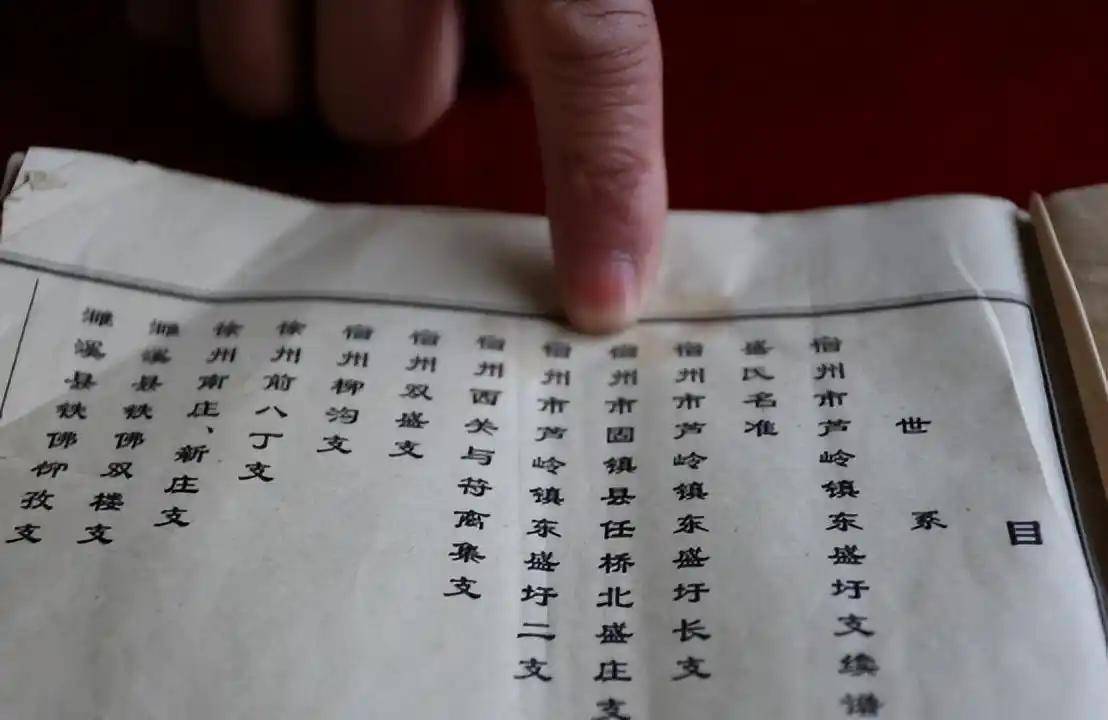 目
世系
宿州市芦岭镇东盛圩支续谱
盛氏名准
宿州市芦岭镇东盛圩长支
宿州市固镇县任桥北盛庄支
宿州市芦岭镇东盛圩二支
宿州西关与符离集支
宿州双盛支
宿州柳沟支
徐州前八丁支
徐州南庄、新庄支
濉溪县铁佛双楼支
濉溪县铁佛仰孜支